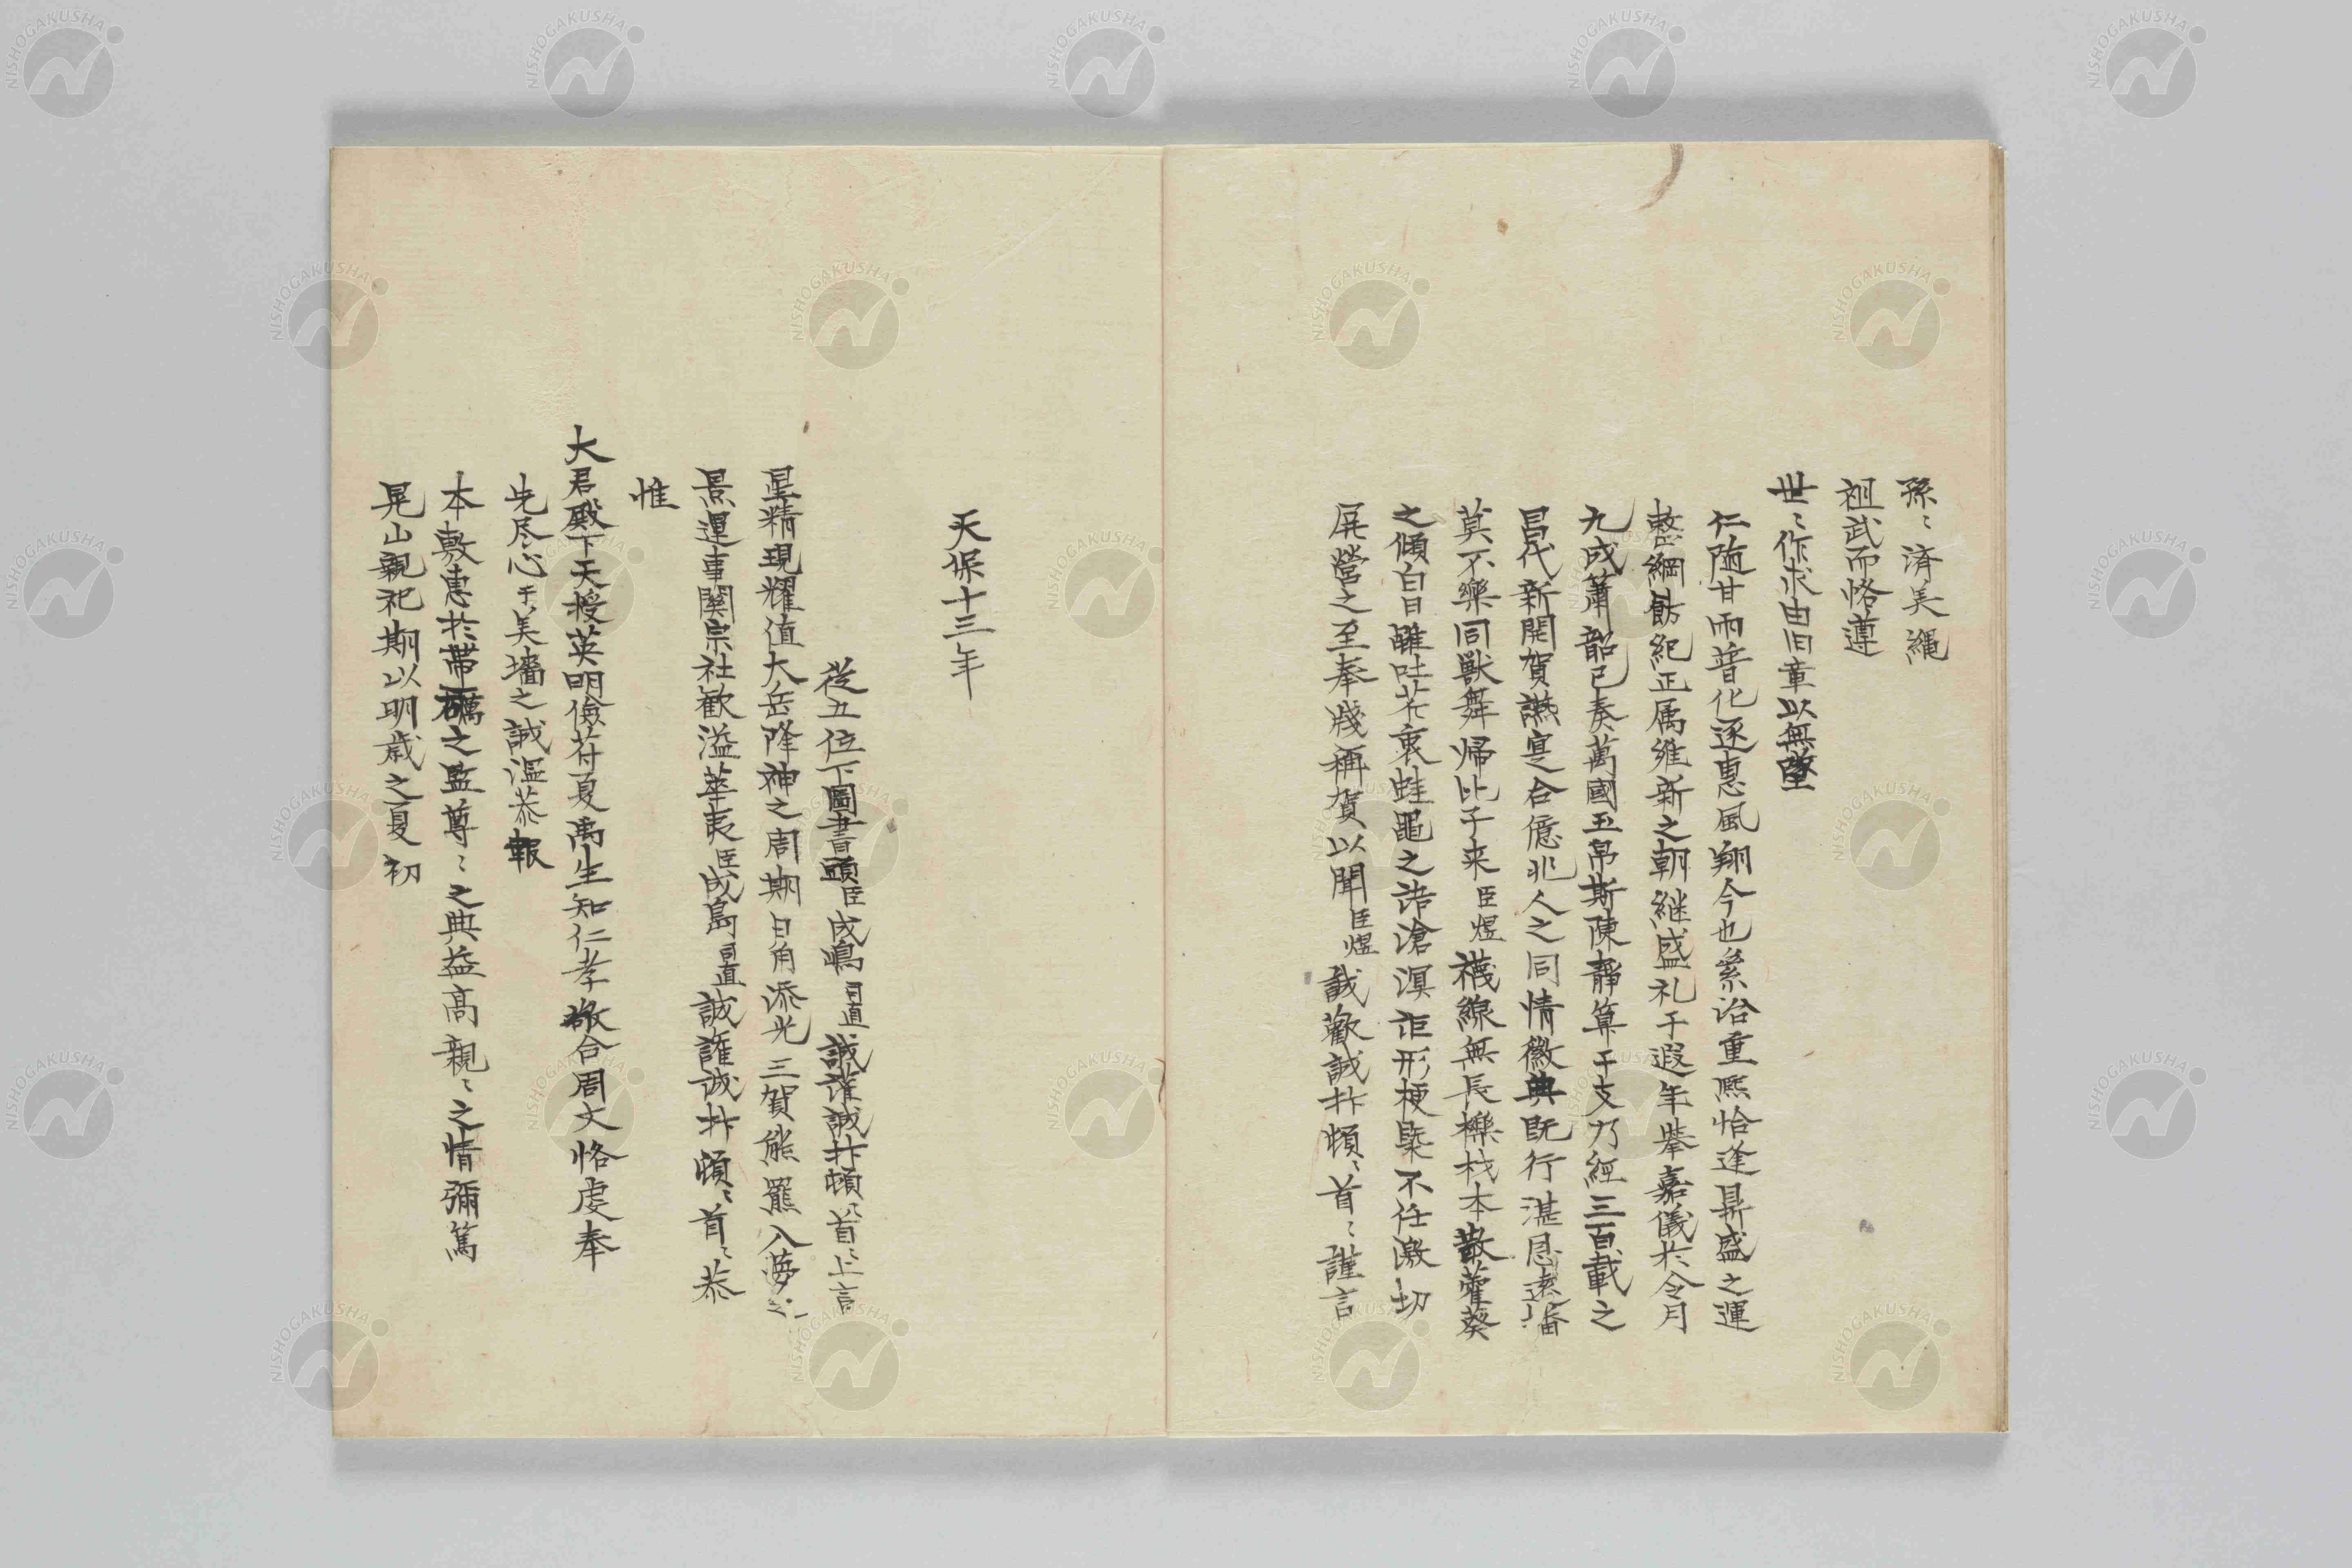 孫〻済美縄
祖武而恪遵
世〻作求由旧章以無墜
仁随甘雨普化逐恵風翔今也累洽重熈恰逢鼎盛之運
整綱飭紀正属維新之朝継盛礼于遐年挙嘉儀於令月
九成簫韶已奏萬國玉帛斯陳靜算干支乃経三百載之
昌代新開賀讌寔合億兆人之同情徽典既行湛恩遠播
莫不樂同獣舞帰比子来臣煜襪線無長櫟材本散藿葵
之傾白日雖吐芹衷蛙黽之誥滄溟詎形梗槩不任激切
屏營之至奉牋称賀以聞臣煜誠歡誠抃頓〻首〻謹言
天保十三年
從五位下圖書頭臣成嶋司直誠讙誠抃頓〻首〻上言
星精現耀値大岳降神之周期日角添光三賀熊羆入夢之
景運事関宗社歓溢華夷臣成島司直誠讙誠抃頓〻首〻恭
惟
大君殿下天授英明儉符夏禹生知仁孝敬合周文恪虔奉
先尽心于美墻之誠温恭報
本敷恵於帯礪之監尊〻之典益高親〻之情彌篤
晃山親祀期以明歳之夏初
NISHOGAKUSHA